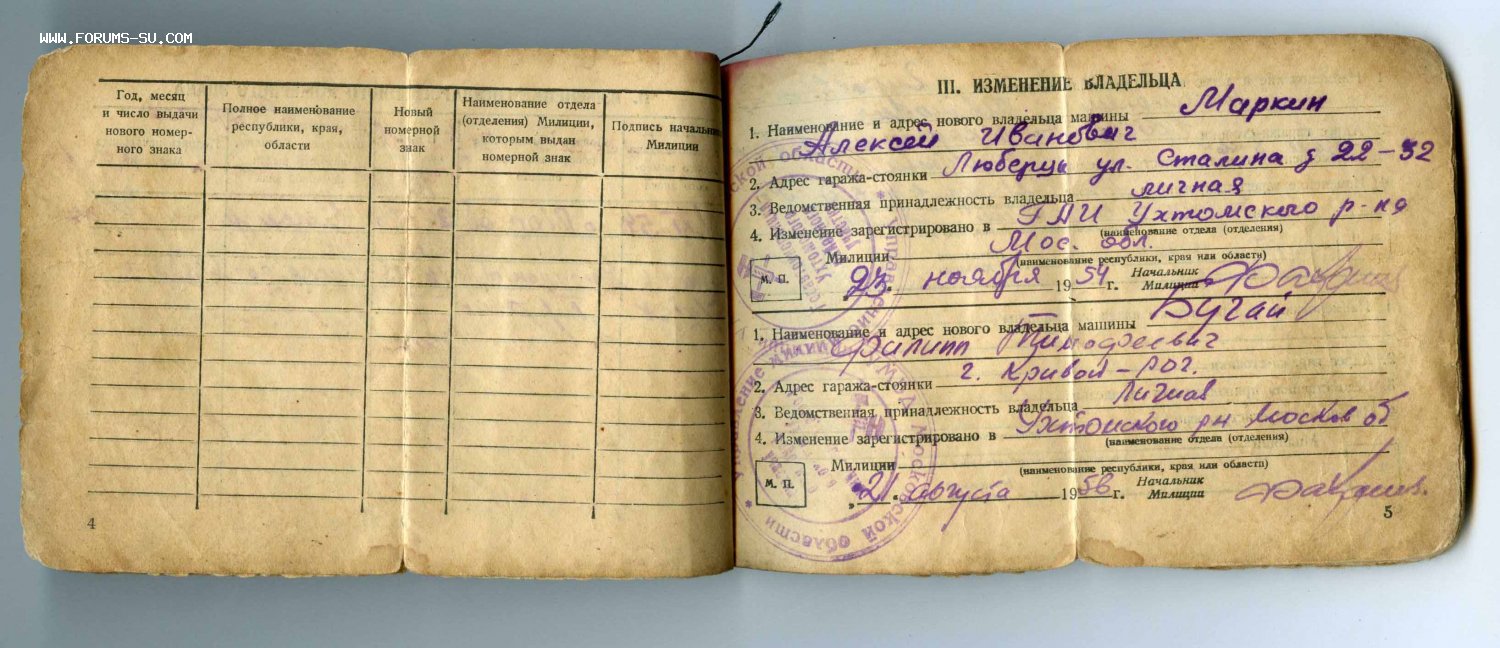 WWW.FORUMS-SU.COM
Год, месяц
и число выдачи
нового номер-
ного знака
Полное наименование
республики, края,
области
Новый
номерной
знак
Наименование отдела
(отделения) Милиции,
которым выдан
номерной знак
Подпись начальни
Милиции
4
III. ИЗМЕНЕНИЕ ВЛАДЕЛЬЦА
1. Наименование и адрес нового владельца машины Маркин
Алексей Иванович
2. Адрес гаража-стоянки Люберцы ул. Сталина д 22-32
3. Ведомственная принадлежность владельца личная
4. Изменение зарегистрировано в ГАИ Ухтомского р-на
(наименование отдела (отделения)
Милиции Мос. обл.
(наименование республики, края или области)
М. П.
„23." ноября 1954 г. Начальник
Милиции
1. Наименование и адрес нового владельца машины Бугай
Филипп Тимофеевич
2. Адрес гаража-стоянки г. Кривой-рог.
3. Ведомственная принадлежность владельца Личная
4. Изменение зарегистрировано в Ухтомского рн Москов об
(наименование отдела (отделения)
Милиции
(наименование республики, края или области)
М. П.
„21" августа 1956 г. Начальник
Милиции
5
Московской области